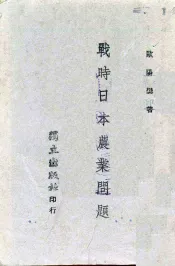 歐陽 著
戰時日本農業問題
獨立出版社
印行